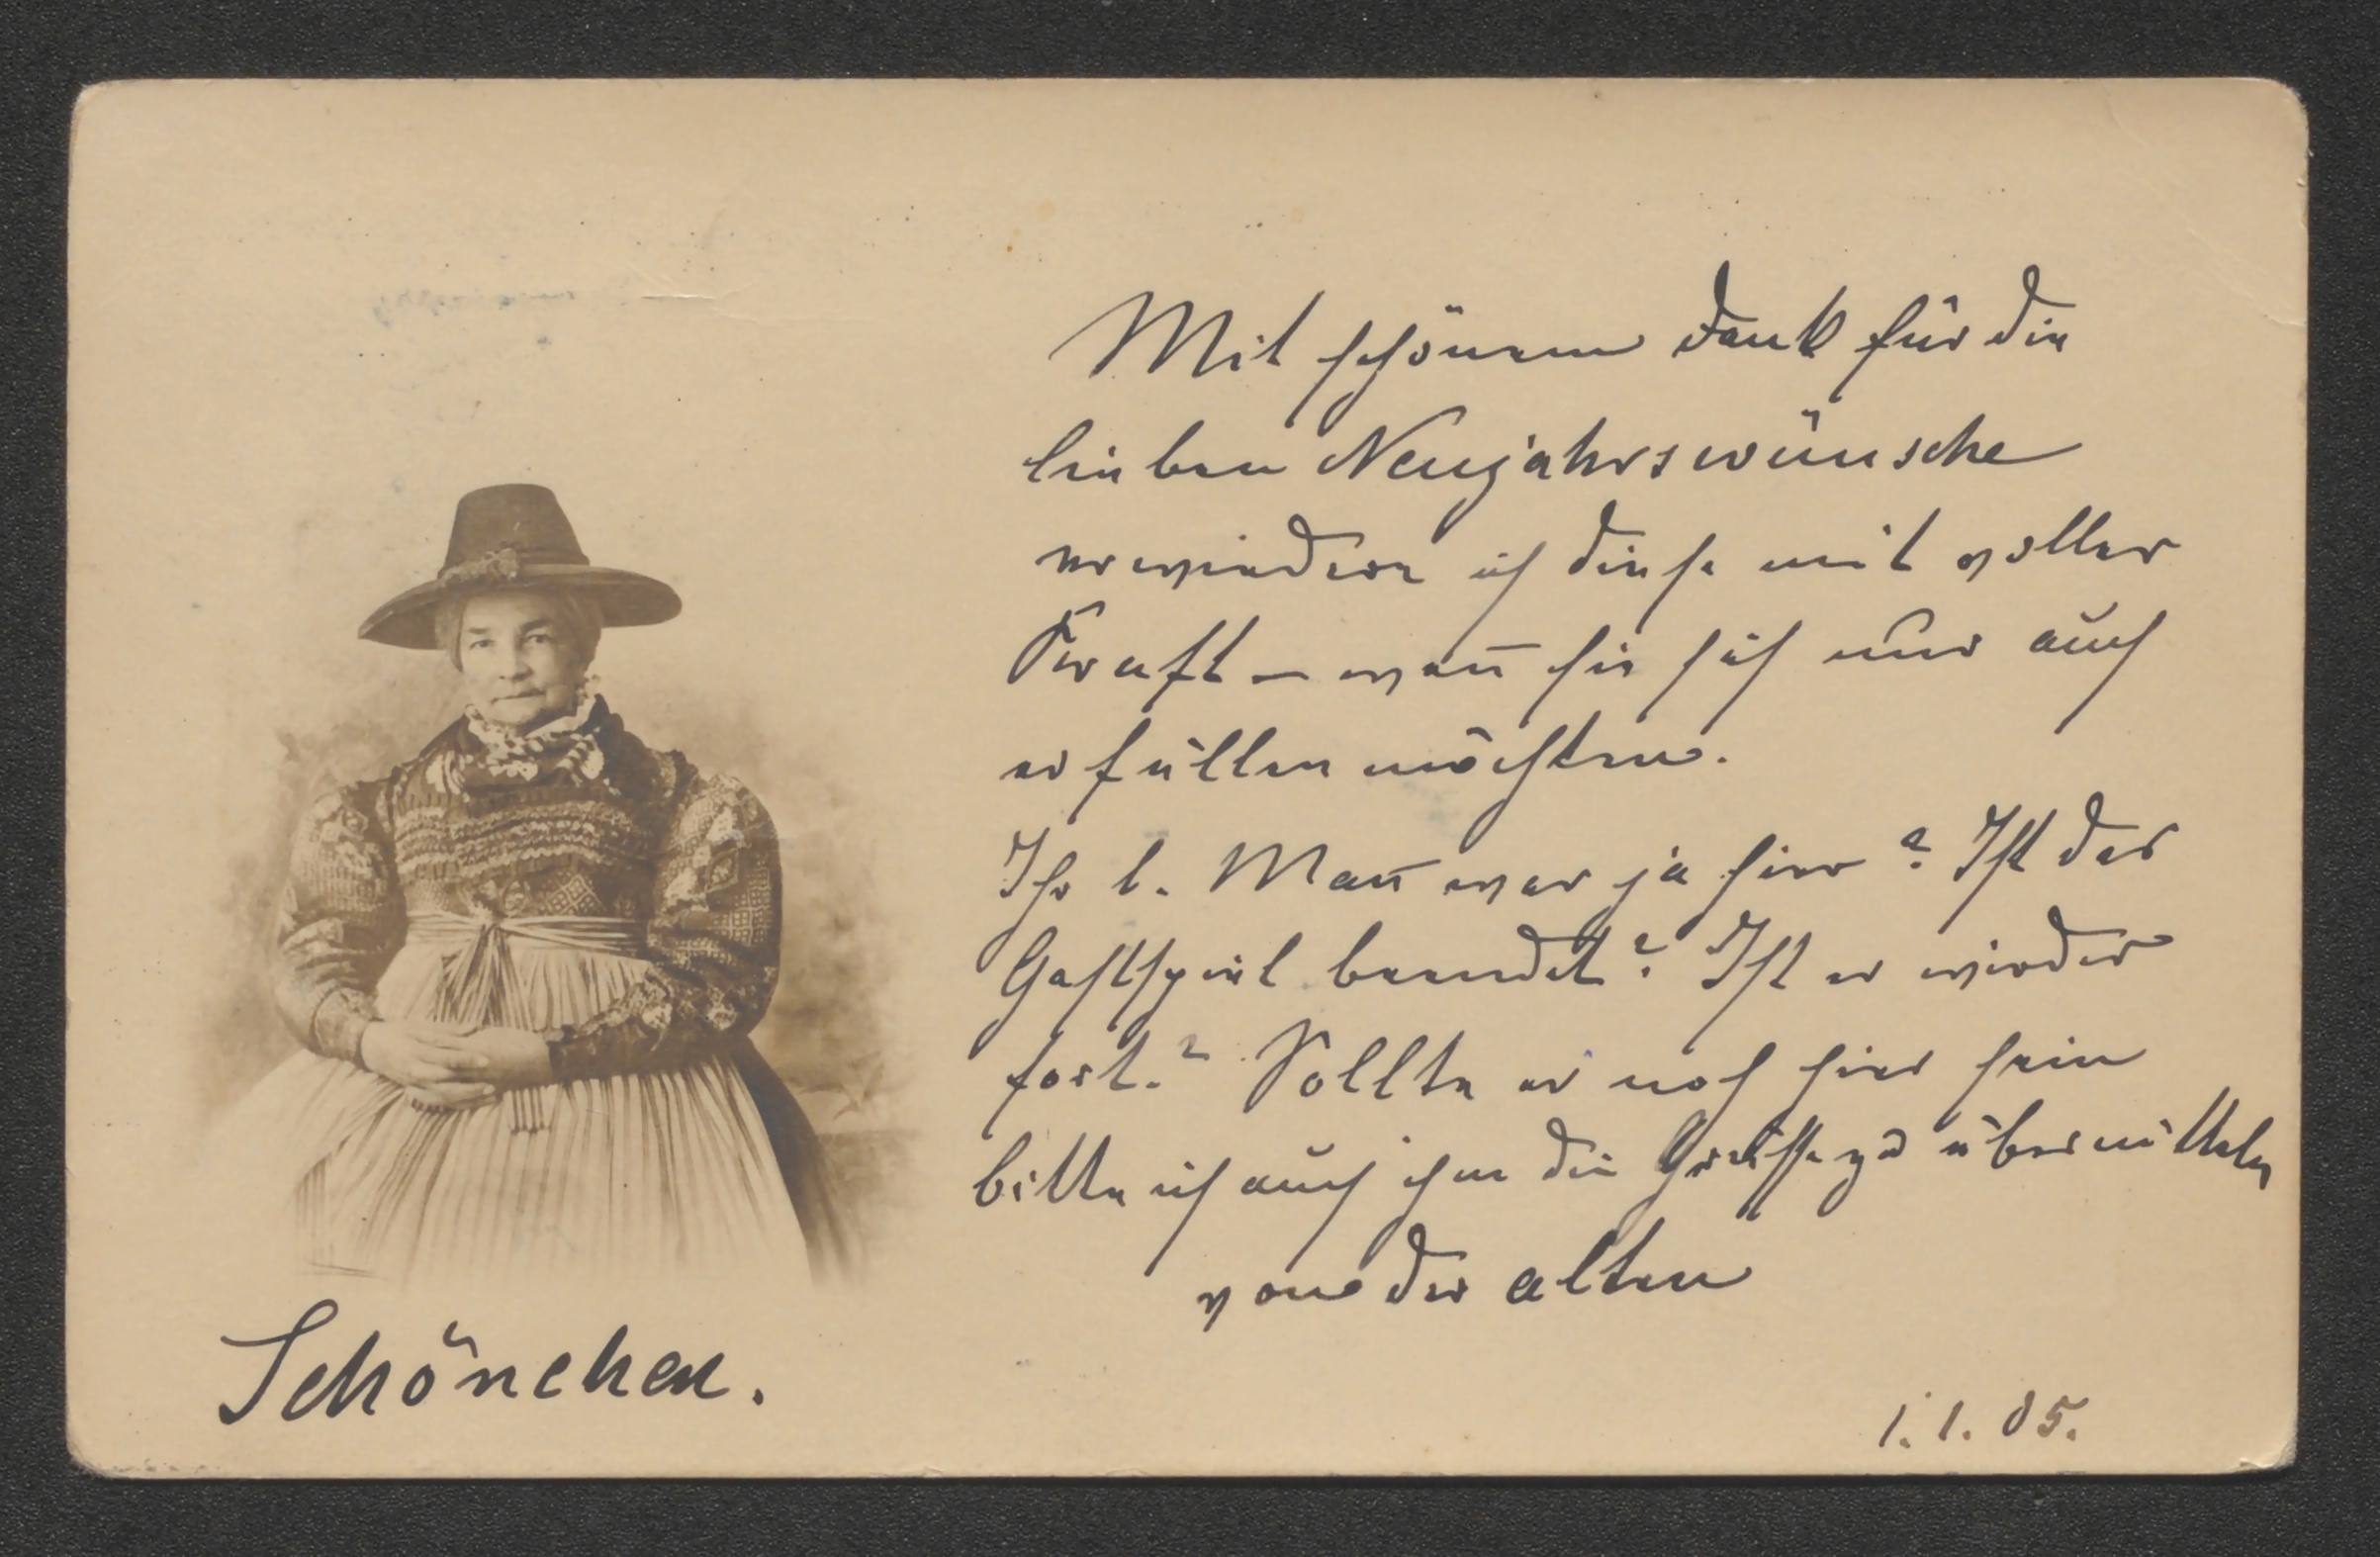 Mit schönem Dank für die
lieben Neujahrswünsche
erwiedere ich diese mit voller
Kraft – wen̄ sie sich nur auch
erfüllen möchten.
Ihr l. Man̄ war ja hier? Ist das
Gastspiel beendet? Ist er wieder
fort? Sollte er noch hier sein
bitte ich auch ihm die Grüsse zu übermitteln
von der alten
Schönchen.
1.1.05.